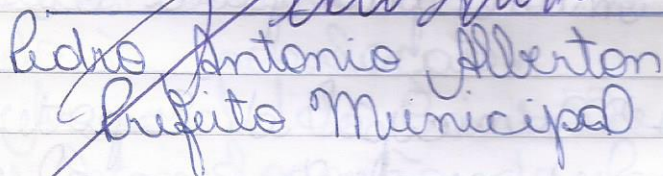 Pedro Antonio Alberton
Prefeito Municipal